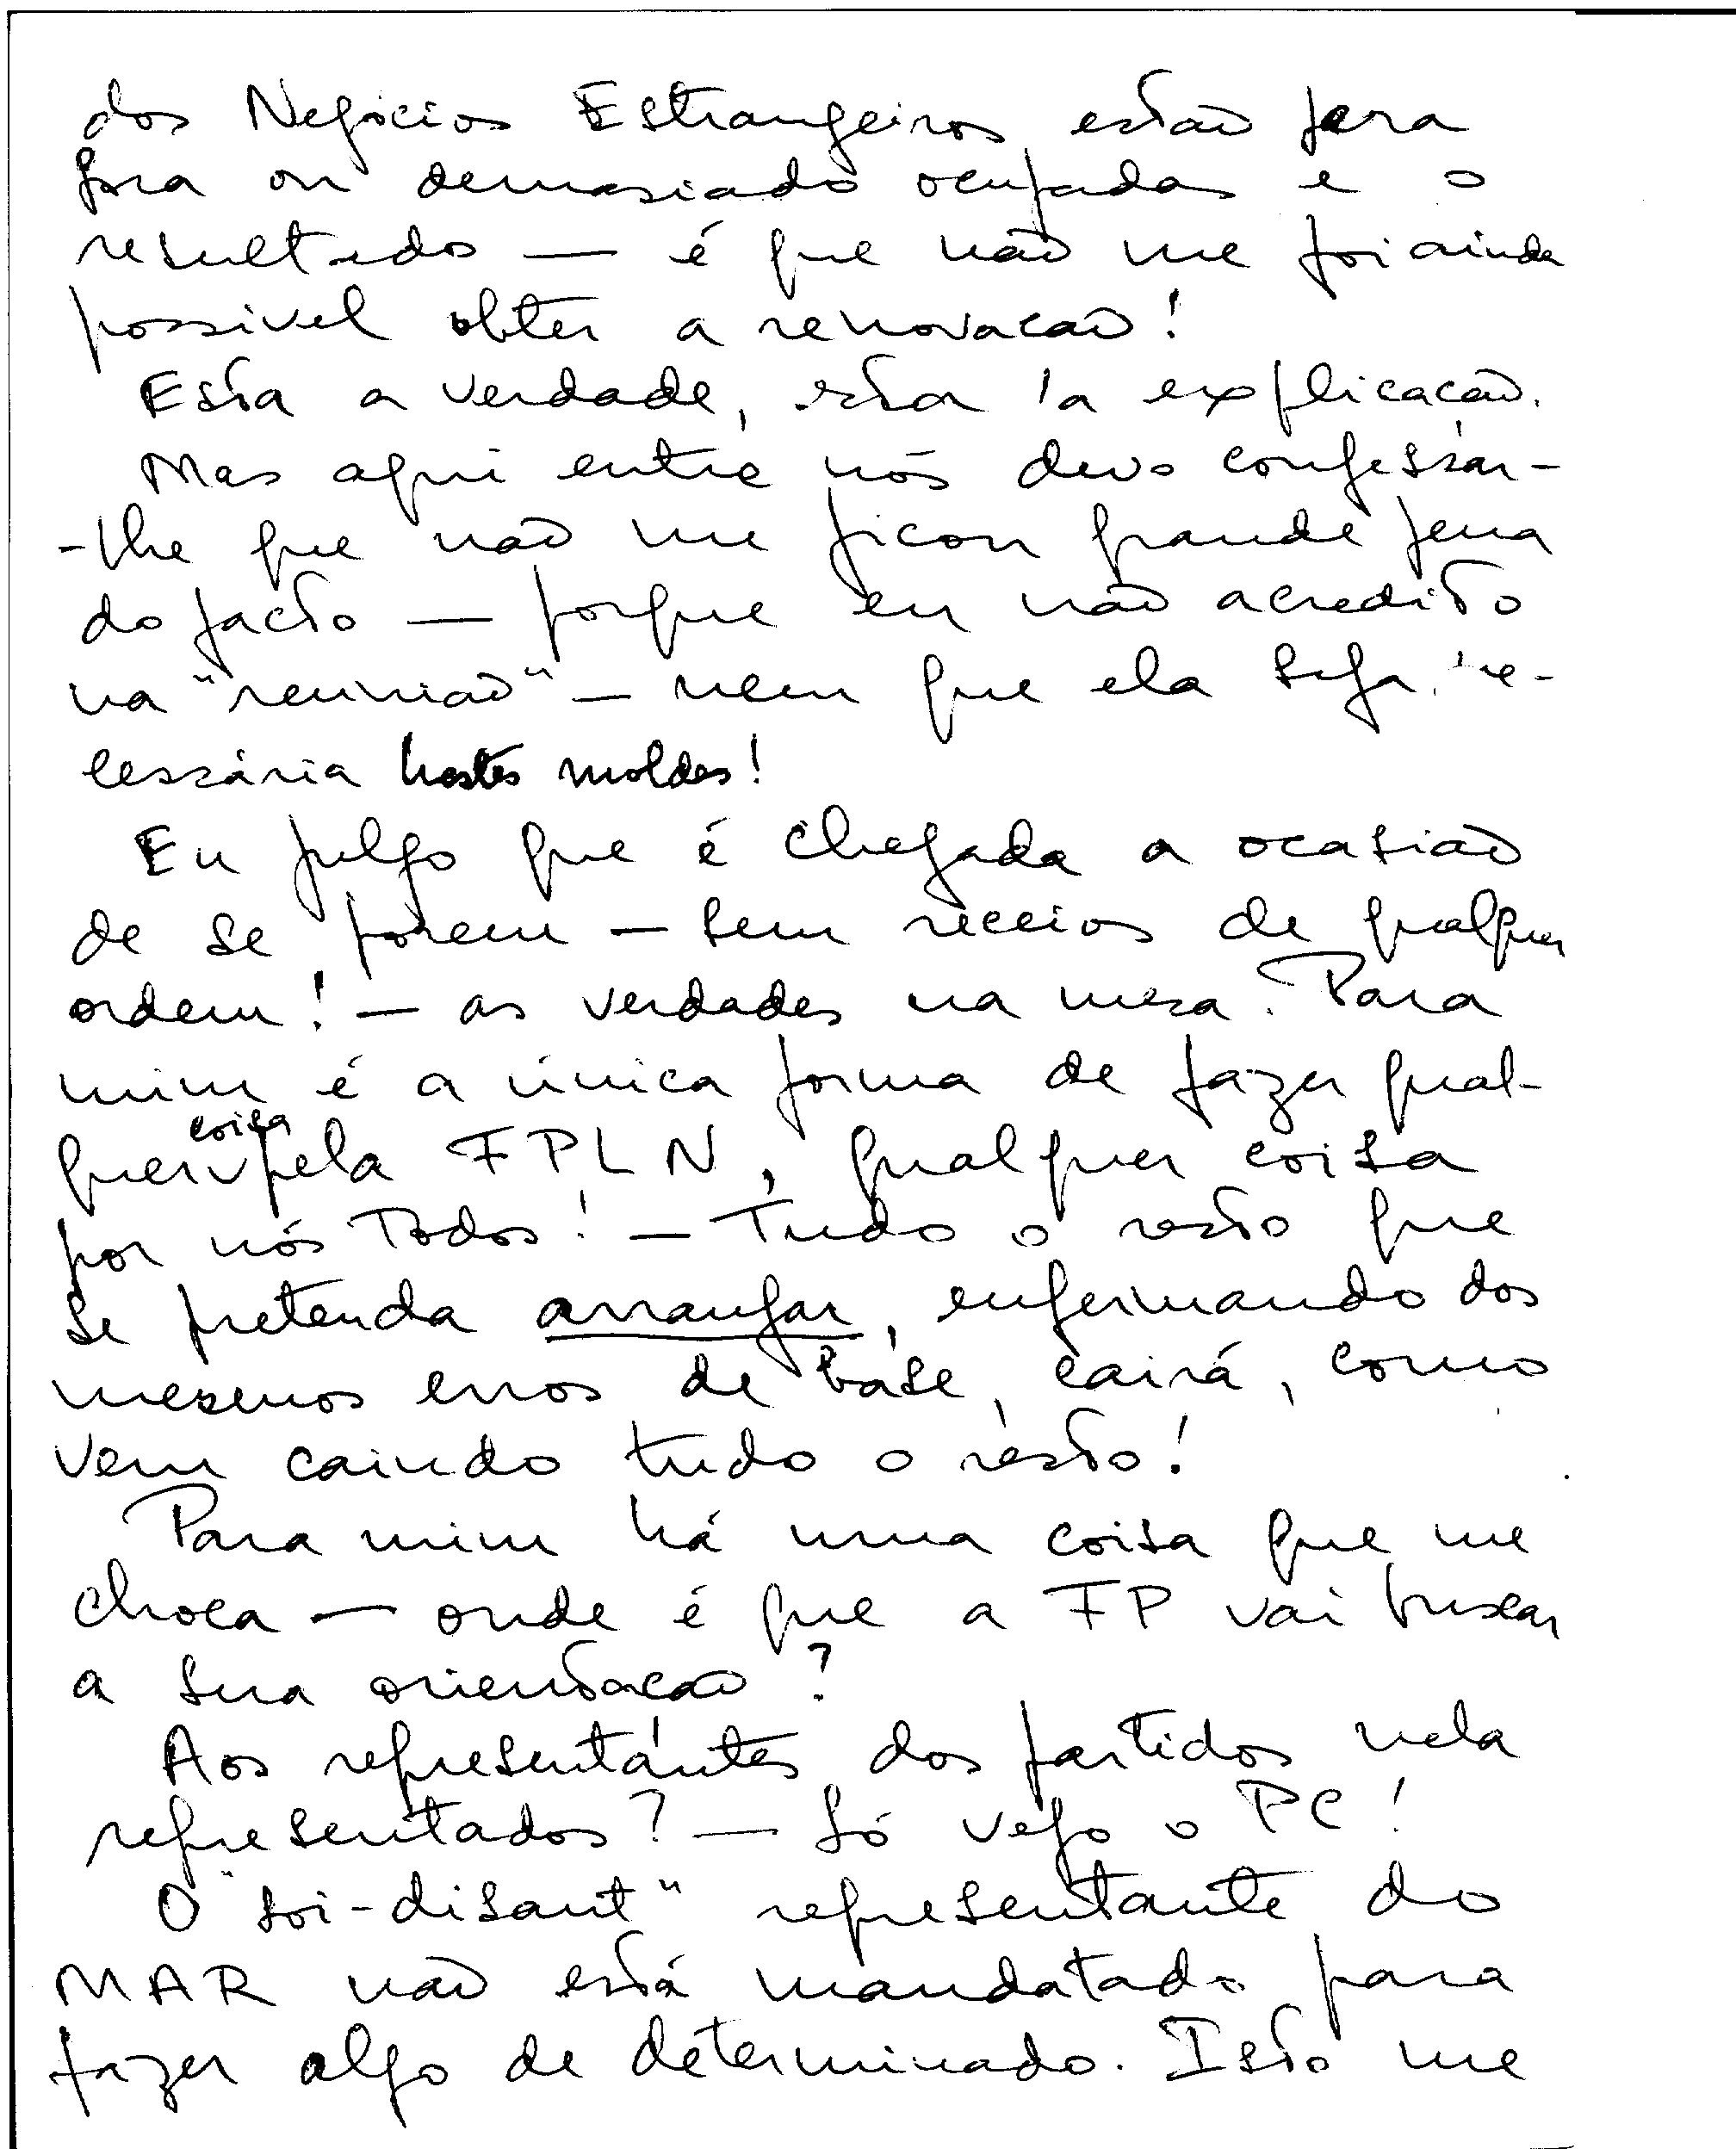 dos Negócios Estrangeiros estão para
fora ou demasiado ocupadas e o
resultado — é que não me foi ainda
possivel obter a renovacão!
Esta a verdade, esta a explicacão.
Mas aqui entre nós devo confessar-
-lhe que não me ficou grande pena
do facto — porque eu não acredito
na "reunião" — nem que ela seja ne-
cessária nestes moldes!
Eu julgo que é chegada a ocasião
de se porem — sem receios de qualquer
ordem! — as verdades na mesa. Para
mim é a única forma de fazer qual-
quer coisa pela FPLN, qualquer coisa
por nós Todos! — Tudo o resto que
se pretenda arranjar, enfermando dos
mesmos erros de base, cairá, como
vem caindo tudo o resto!
Para mim há uma coisa que me
choca — onde é que a FP vai buscar
a sua orientacão?
Aos representantes dos partidos nela
representados? — Só vejo o PC!
O "soi-disant" representante do
MAR não está mandatado para
fazer algo de determinado. Isto me